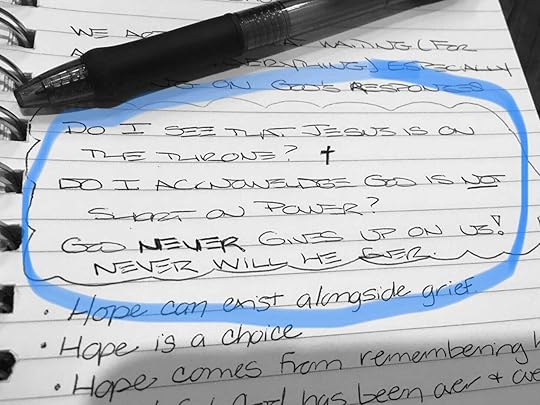 WE
WAITING (FOR
EVERYTHING) ESPECIALLY
ON GOD'S RESPONSES
DO I SEE THAT JESUS IS ON
THE THRONE? ✝
DO I ACKNOWLEDGE GOD IS NOT
SHORT ON POWER?
GOD NEVER GIVES UP ON US!
NEVER WILL HE EVER.
• Hope can exist alongside grief.
• Hope is a choice
• Hope comes from remembering
God has been over + over